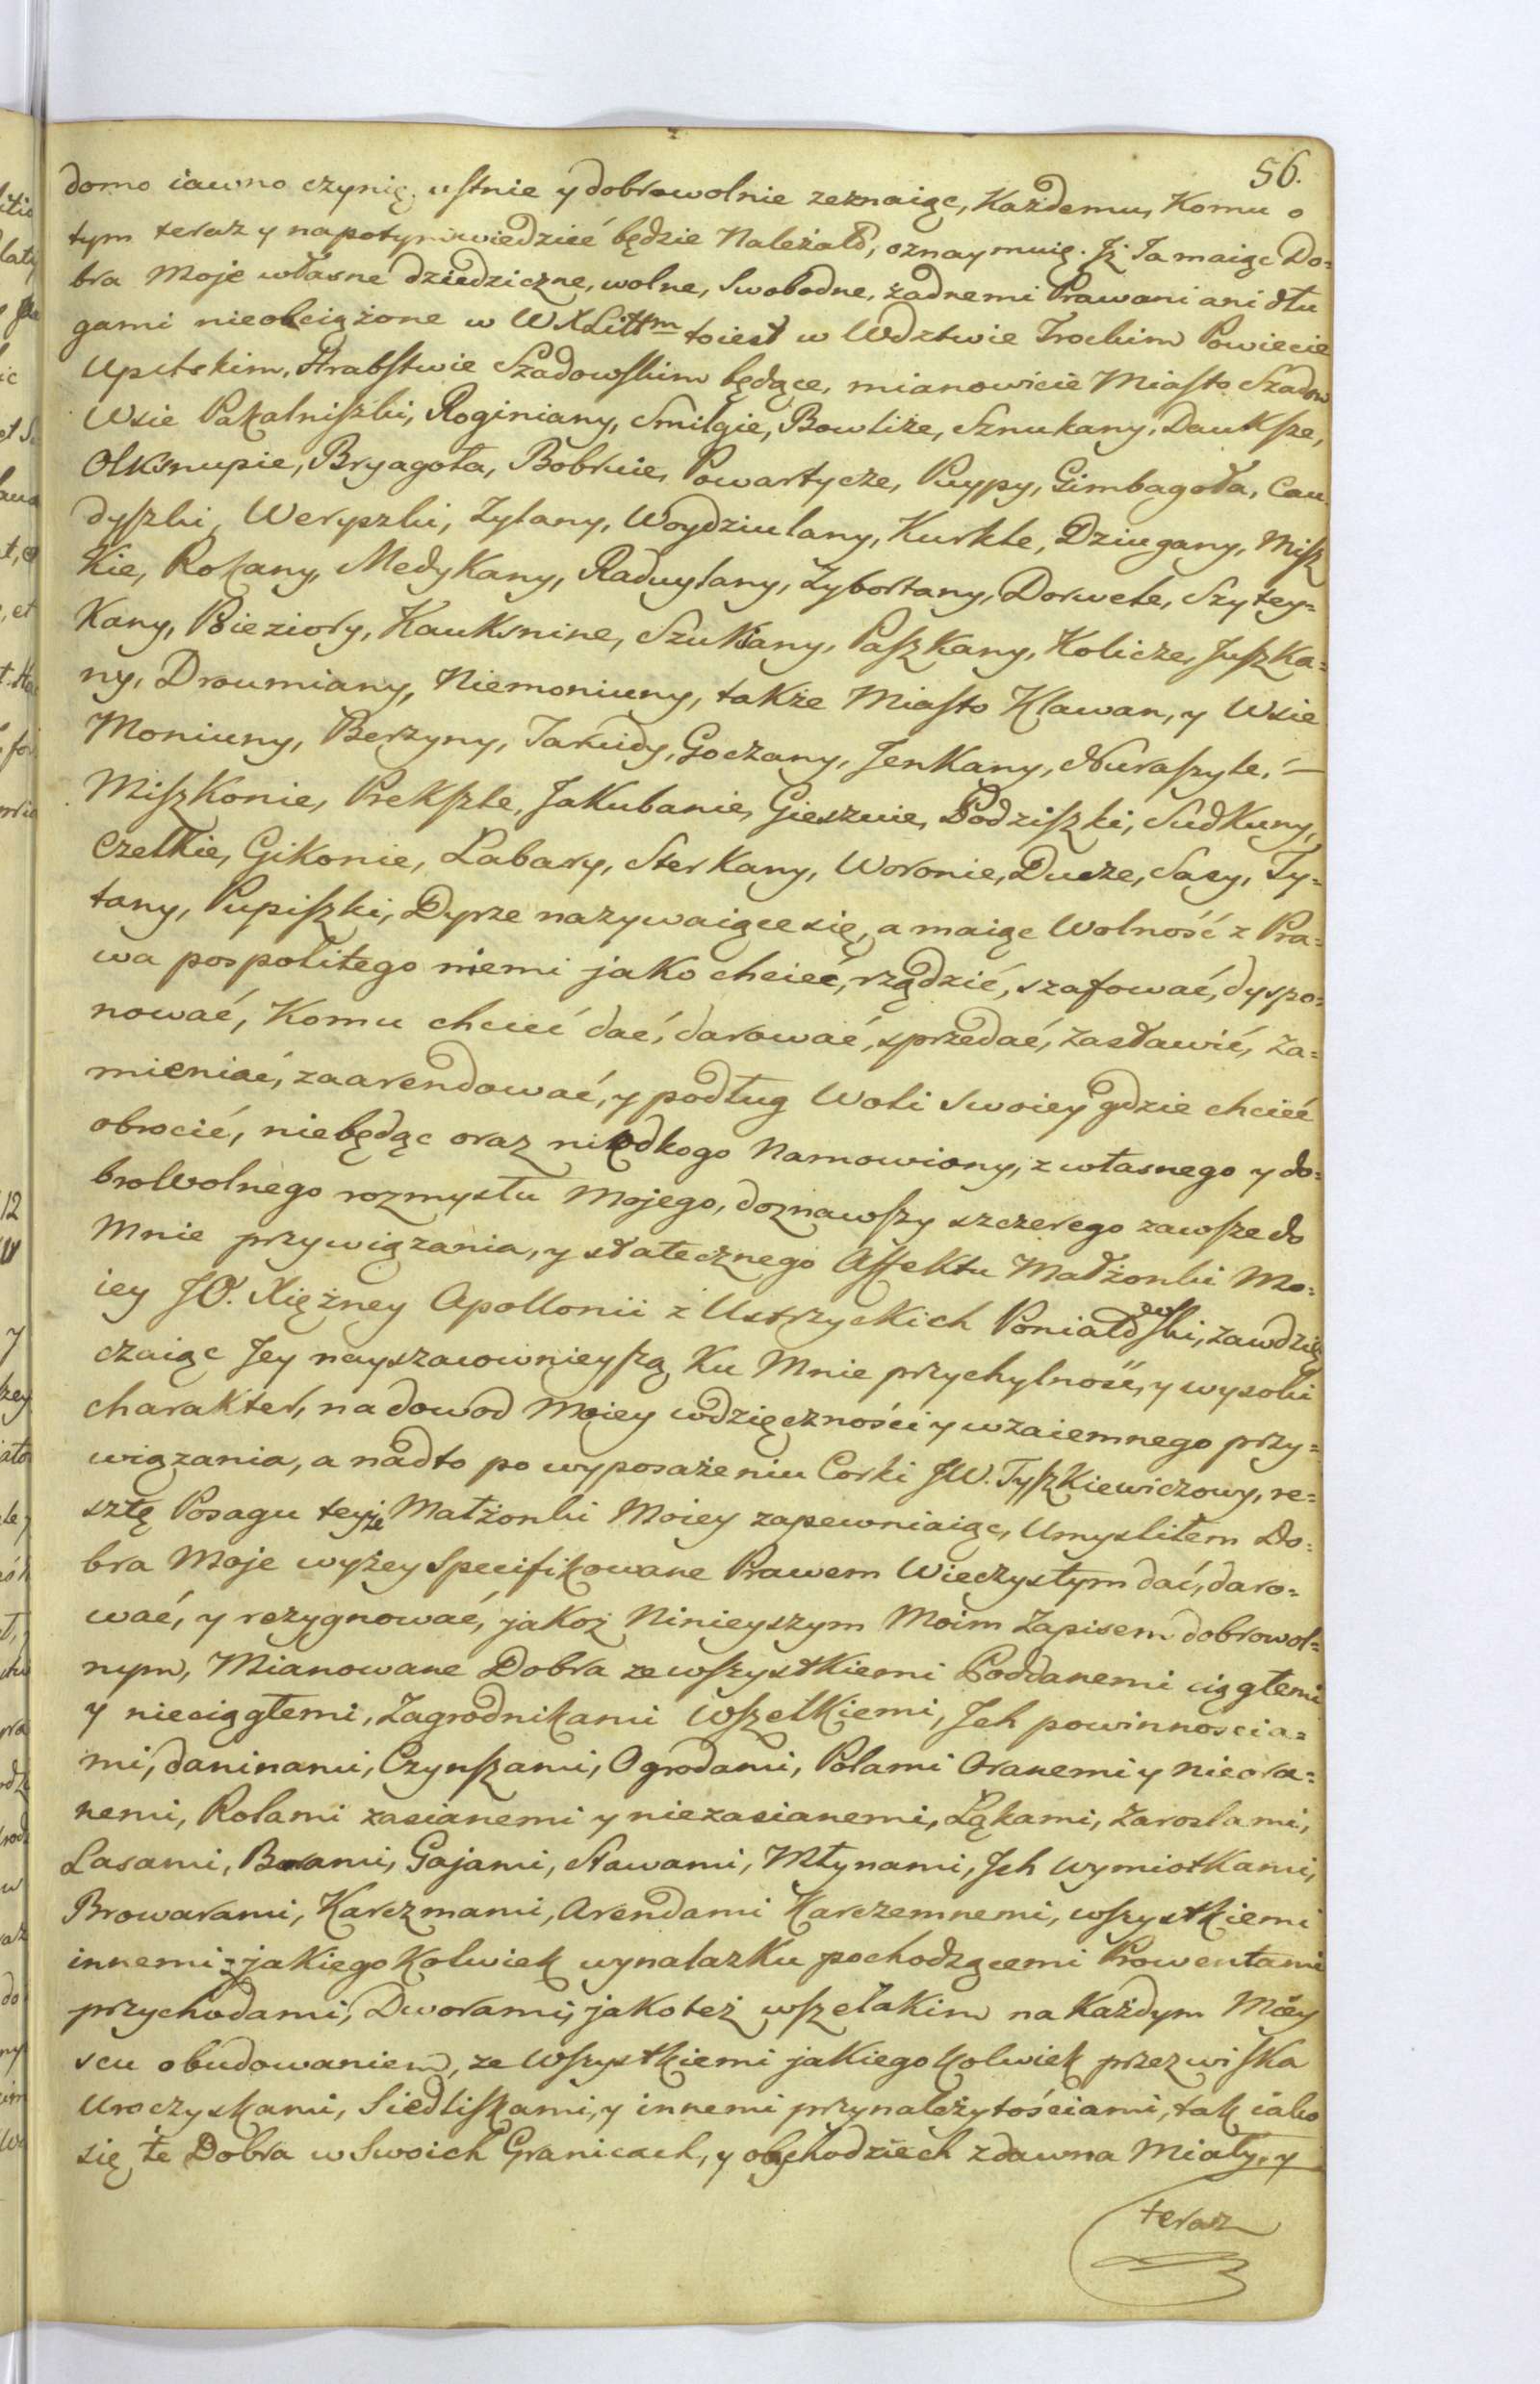 56.
domo iawno czynię, ustnie y dobrowolnie zeznaiąc, Każdemu, Komu o
tym teraz y napotym wiedzieć będzie Należało, oznaymuię. Jż Ja maiąc Do=
bra Moje własne dziedziczne, wolne, Swobodne, żadnemi Prawami ani dłu
gami nieobciążone w WXLittm toiest w Wdztwie Trockim Powiecie
Upitskim, Hrabstwie Szadowskim będące, mianowicie Miasto Szadow
Wsie Pakalniszki, Roginiany, Smilgie, Bowliże, Sznukany, Dauksze,
Olksnupie, Bryagoła, Bobrucie, Powartycze, Puypy, Gimbagoła, Cau
dyszki, Weryszki, Zylany, Woydziulany, Kurkle, Dziugany, Misz
Kie, Rokany, Medykany, Radwylany, Zybortany, Dorwele, Szytey=
Kany, Bieziory, Kauksnine, Szukiany, Paszkany, Kolicze, Juszka=
ny, Droumiany, Niemoniuny, także Miasto Klawan, y Wsie
Moniuny, Berzyny, Jakuidy, Goczany, Jenkany, Nuraszyle, —
Miszkonie, Prekszle, Jakubanie, Gieszuie, Podziszki, Sudkuny,
Czelkie, Gikonie, Labary, Sterkany, Woronie, Ducze, Sasy, Ty=
tany, Pupiszki, Dyrze nazywaiącesię, a maiąc Wolność z Pra=
wa pospolitego niemi jako chcieć, rządzić, szafować, dyspo=
nować, Komu chcieć dać, darować, sprzedać, zastawić, za=
mieniać, zaarendować, y podług Woli swoiey gdzie chcieć
obrocić, niebędąc oraz niodkogo Namowiony, z własnego y do=
broWolnego rozmysłu Mojego, doznawszy szczerego zawsze do
Mnie przywiązania, y statecznego Affektu Małżonki Mo=
iey JO. Xiężney Apollonii z Ustrzyckich Poniatowski, zawdzię
czaiąc Jey nayszacownieyszą Ku Mnie przychylność, y wysoki
charakter, na dowod Moiey wdzięczności y wzaiemnego przy=
wiązania, a nadto po wyposażeniu Corki JW. Tyszkiewiczowy, re=
sztę Posagu teyże Małżonki Moiey zapewniaiąc, Umysliłem Do=
bra Moje wyżey Specifikowane Prawem Wieczystym dać, daro=
wać, y rezygnować, jakoż Ninieyszym Moim Zapisem dobrowol=
nym, Mianowane Dobra ze wszystkiemi Poddanemi ciągłemi
y nieciągłemi, Zagrodnikami Wszelkiemi, Jch powinnoscia=
mi, daninami, Czynszami, Ogrodami, Polami Oranemi y nieora=
nemi, Rolami zasianemi y niezasianemi, Łąkami, Zaroslami,
Lasami, Borami, Gajami, Stawami, Młynami, Jch Wymiołkami,
Browarami, Karczmami, Arendami Karczemnemi, wszystkiemi
innemi z jakiegokolwiek wynalazku pochodzącemi Prowentami
przychodami, Dworami, jakoteż wszelakim na Każdym Miey
scu obudowaniem, ze Wszystkiemi jakiegokolwiek przezwiska
Uroczyskami, Siedliskami, y innemi przynależytościami, tak iako
się te Dobra w Swoich Granicach, y obychodziech zdawna Miały, y
teraz